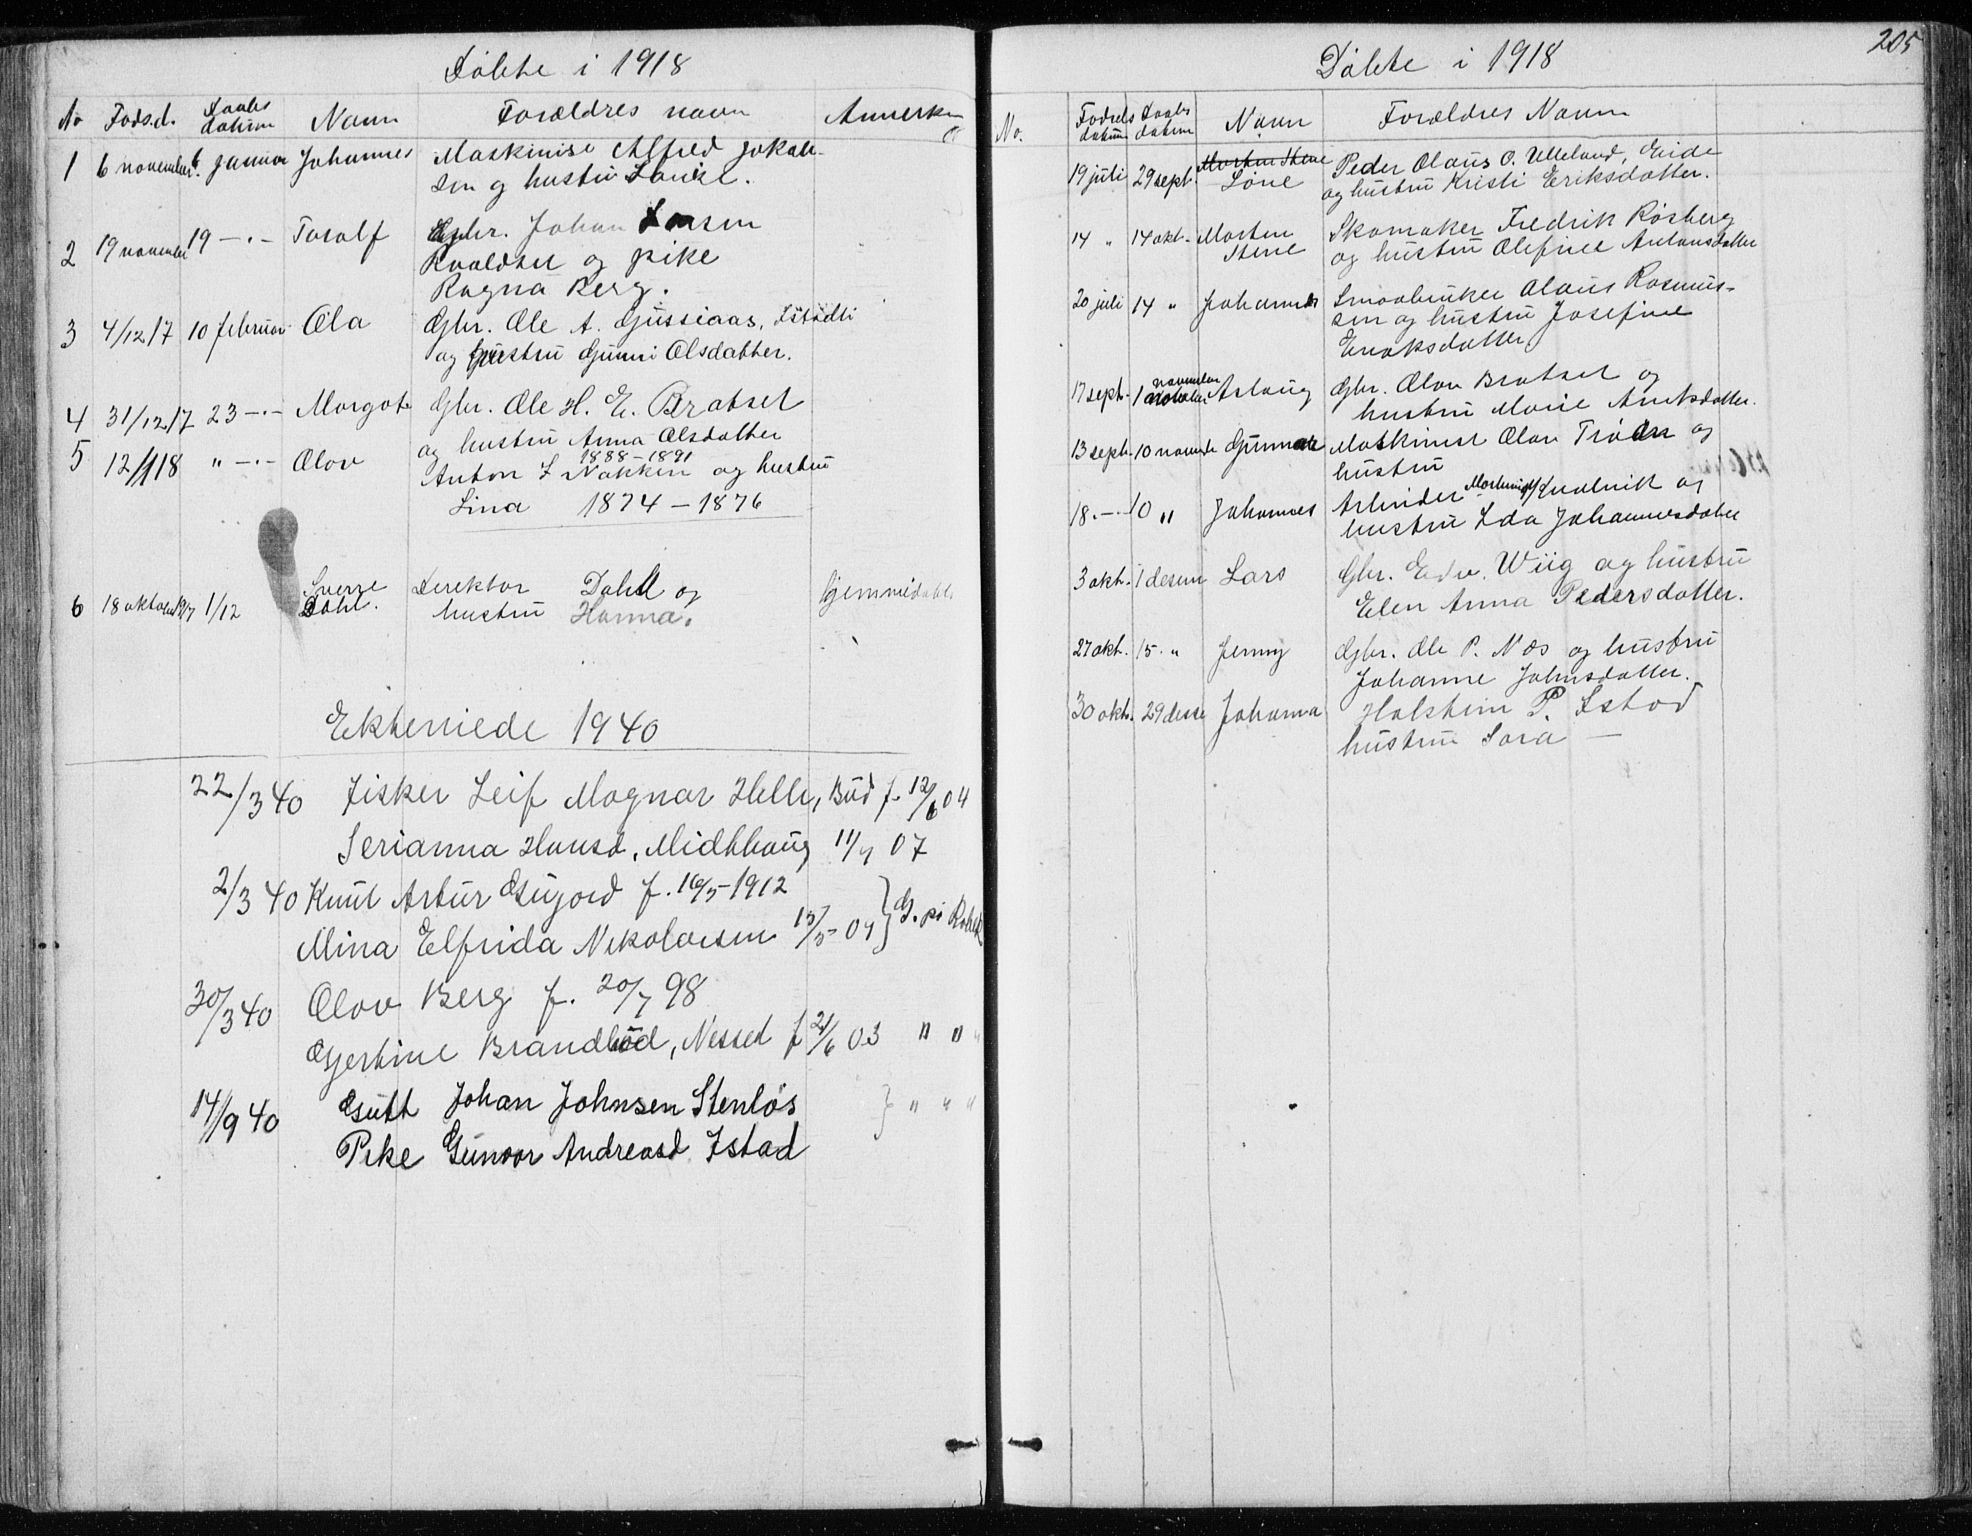 Døbte i 1918
No Føds.d. Daabs datum Navn Forældres navn Anmerkn
1 6 november 6. januar Johannes Maskinist Alfred Jakob-
sen og hustru Louise.
2 19 november 19 -"- Toralf Gbr. Johan Larsen
Kvaldset og pike
Ragna Berg.
3 4/12 17 10 februar Ola Gbr. Ole A. Gussiaas, Istadli
og hustru Gunni Olsdatter.
4 31/12 17 23 -"- Margot Gbr. Ole H. E. Bratset
og hustru Anna Olsdatter
1888 - 1891
5 12/1 18 " -"- Olov Anton I Nakken og hustru
Lina 1874 - 1876
6 18 oktober 1917 1/12 Sverre Dahl. Derektør Dahl og hjemmedøbt
hustru Hanna.
Ekteviede 1940
22/3 40 Fisker Leif Magnar Helle, Bud f. 12/6 04
Serianna Hansd, Midthaug 11/7 07
2/3 40 Knut Artur Gujord f. 16/5 - 1912
Mina Elfrida Nikolaisen 15/5 - 07 } G. på Rabek
30/3 40 Olov Berg f. 20/7 98
Gjertine Brandhød, Nesset f 21/6 03 " " "
14/9 40 Gutt Johan Johnsen Stenløs } " " "
Pike Gunvor Andreasd Istad
205
Døbte i 1918
No. Fødsels datum Daabs datum Navn Forældres Navn
19 juli 29 sept. Morten Stene Løne Peder Olaus O. Ulleland, Eide
og hustru Kristi Eriksdatter.
14 " 14 okt. Morten Stene Skomaker Fredrik Røsberg
og hustru Olefine Antonsdatter
20 juli 14 " Johannes Smaabruker Olaus Rasmus-
sen og hustru Josefine
Enoksdatter
17 sept. 1 november Aslaug Gbr. Olav Bratset og
hustru Marie Amksdatter.
13 sept. 10 novembe Gunnar Maskinist Olav Trøan og
hustru
18. -"- 10 " Johannes Arbeider Kvalvik og
hustru Ida Johannesdatter
3 okt. 1 desem Lars Gbr. Edv. Wiig og hustru
Elen Anna Pedersdatter.
27 okt. 15. " Jenny Gbr. Ole P. Næs og hustru
Johanne Johnsdatter.
30 okt. 29 dese Johanna Halstein P. Istad
hustru Sara —